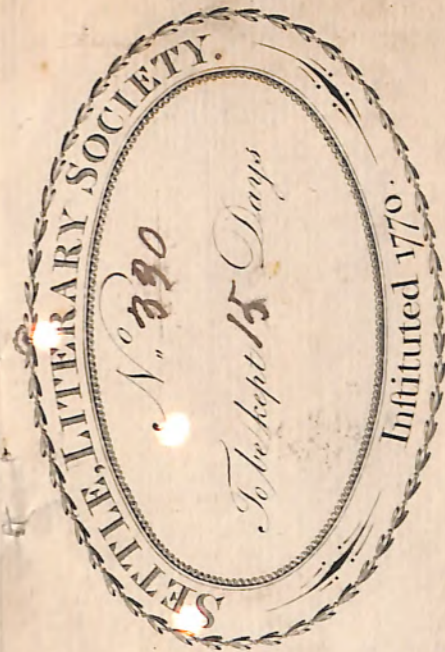 SETTLE, LITERARY SOCIETY.
N.º 390
To be kept 15 Days
Inſtituted 1770.